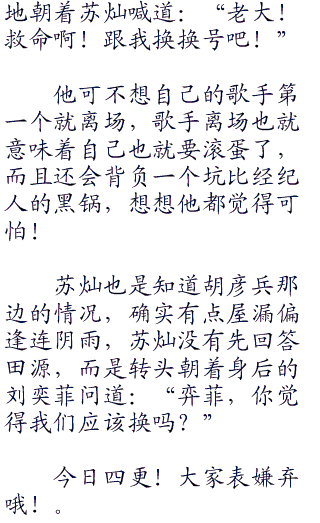 地朝着苏灿喊道：“老大！
救命啊！跟我换换号吧！”
他可不想自己的歌手第
一个就离场，歌手离场也就
意味着自己也就要滚蛋了，
而且还会背负一个坑比经纪
人的黑锅，想想他都觉得可
怕！
苏灿也是知道胡彦兵那
边的情况，确实有点屋漏偏
逢连阴雨，苏灿没有先回答
田源，而是转头朝着身后的
刘奕菲问道：“弈菲，你觉
得我们应该换吗？”
今日四更！大家表嫌弃
哦！。